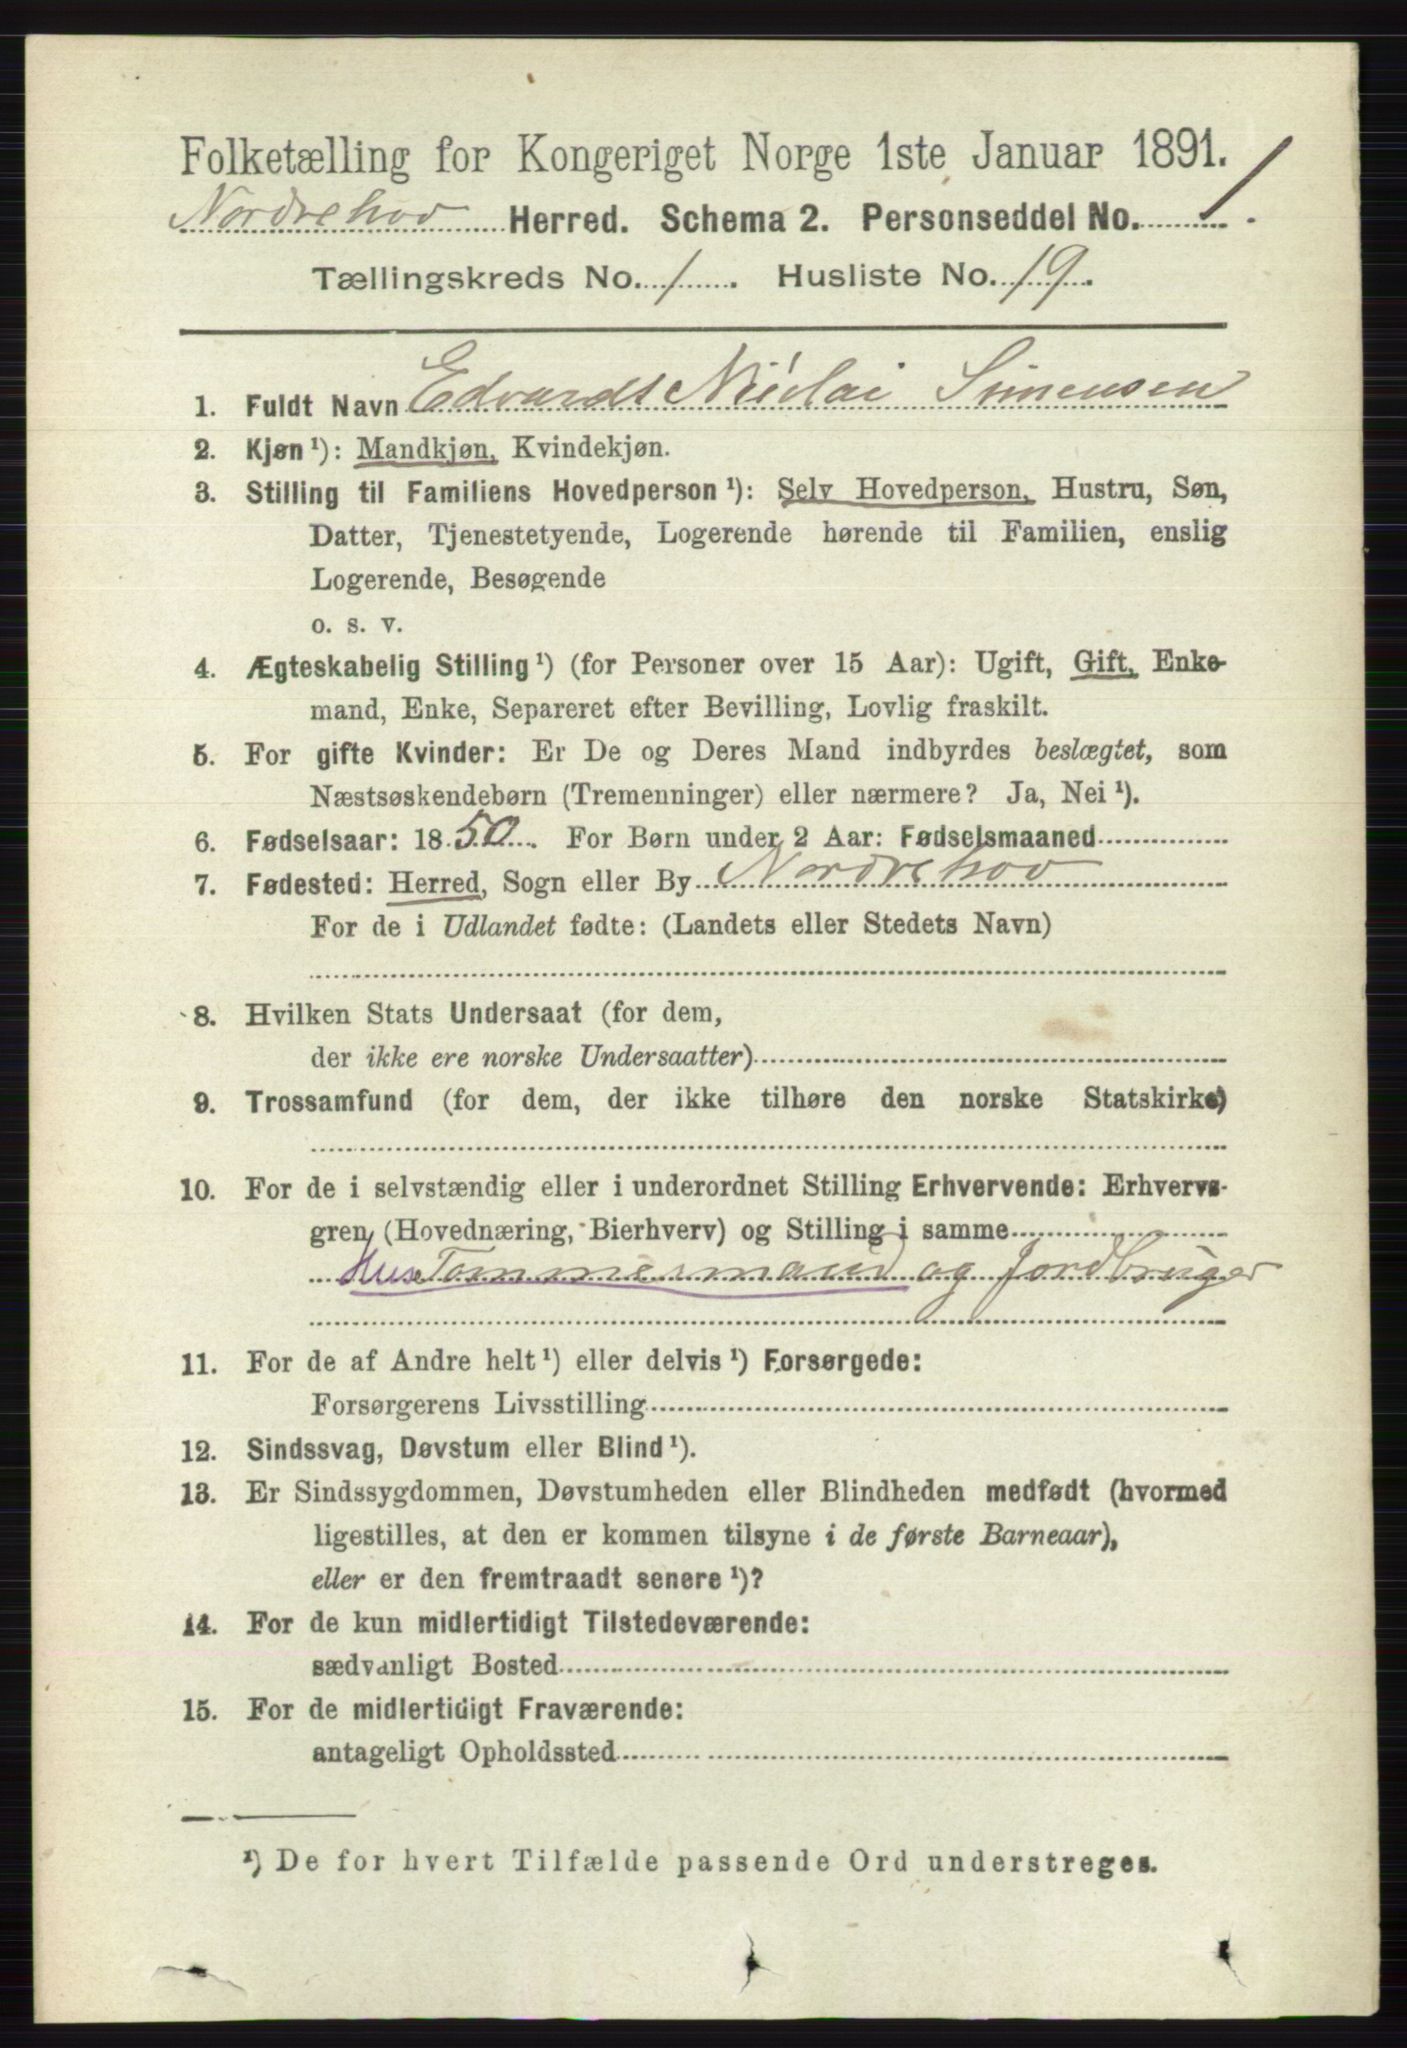 Folketælling for Kongeriget Norge 1ste Januar 1891.
Nordrehov Herred. Schema 2. Personseddel No. 1.
Tællingskreds No. 1. Husliste No. 19.
1. Fuldt Navn Edvardt Nicolai Simensen
2. Kjøn¹): Mandkjøn, Kvindekjøn.
3. Stilling til Familiens Hovedperson¹): Selv Hovedperson, Hustru, Søn,
Datter, Tjenestetyende, Logerende hørende til Familien, enslig
Logerende, Besøgende
o. s. v.
4. Ægteskabelig Stilling¹) (for Personer over 15 Aar): Ugift, Gift, Enke-
mand, Enke, Separeret efter Bevilling, Lovlig fraskilt.
5. For gifte Kvinder: Er De og Deres Mand indbyrdes beslægtet, som
Næstsøskendebørn (Tremenninger) eller nærmere? Ja, Nei¹).
6. Fødselsaar: 1850. For Børn under 2 Aar: Fødselsmaaned
7. Fødested: Herred, Sogn eller By Nordrehov
For de i Udlandet fødte: (Landets eller Stedets Navn)
8. Hvilken Stats Undersaat (for dem,
der ikke ere norske Undersaatter)
9. Trossamfund (for dem, der ikke tilhøre den norske Statskirke)
10. For de i selvstændig eller i underordnet Stilling Erhvervende: Erhvervs-
gren (Hovednæring, Bierhverv) og Stilling i samme
Hus Tømmermand og Jordbruger
11. For de af Andre helt¹) eller delvis¹) Forsørgede:
Forsørgerens Livsstilling
12. Sindssvag, Døvstum eller Blind¹).
13. Er Sindssygdommen, Døvstumheden eller Blindheden medfødt (hvormed
ligestilles, at den er kommen tilsyne i de første Barneaar),
eller er den fremtraadt senere¹)?
14. For de kun midlertidigt Tilstedeværende:
sædvanligt Bosted
15. For de midlertidigt Fraværende:
antageligt Opholdssted
¹) De for hvert Tilfælde passende Ord understreges.